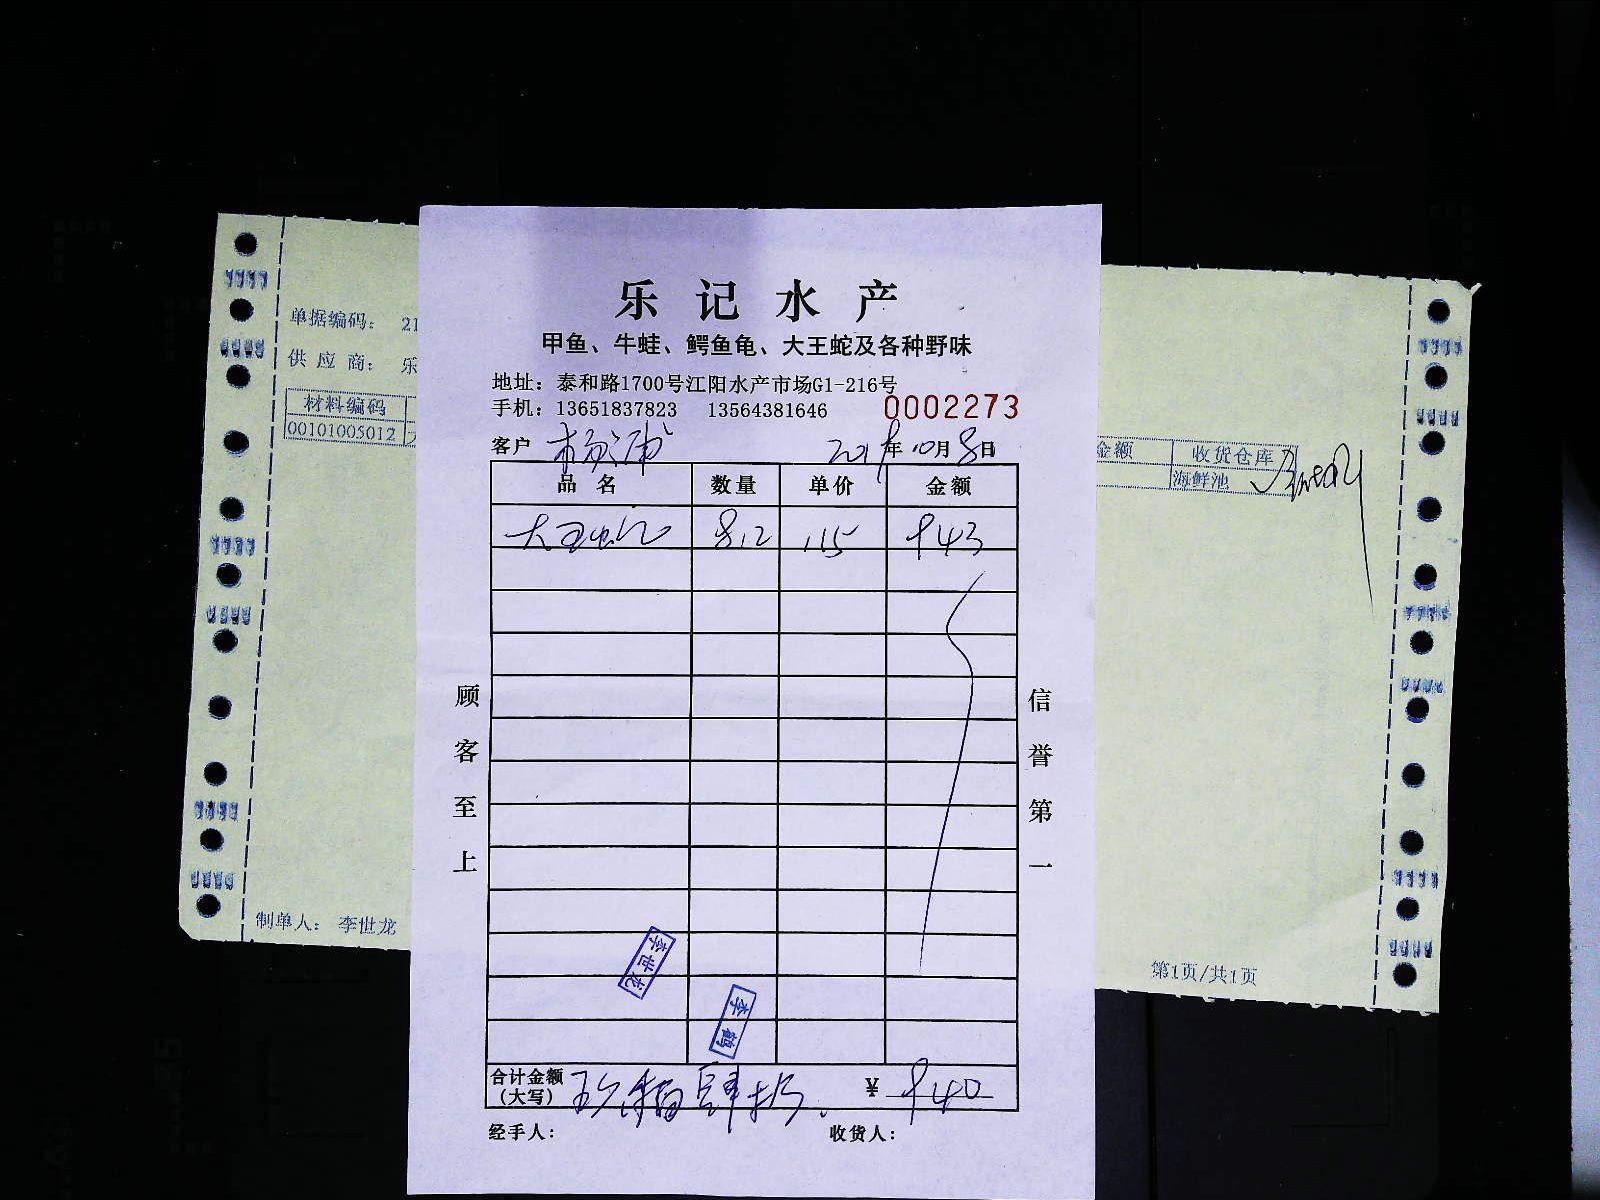 乐记水产
甲鱼、牛蛙、鳄鱼龟、大王蛇及各种野味
地址：泰和路1700号江阳水产市场G1-216号
手机：13651837823 13564381646 0002273
客户 杨浦 2019年10月8日
品名 数量 单价 金额
大王蛇 8.2 115 943
顾客至上
信誉第一
李世龙
李鹤
合计金额(大写) 玖佰肆拾 ¥ 940
经手人： 收货人：
单据编码： 21
供应商： 乐
材料编码
00101005012
金额 收货仓库
海鲜池
制单人： 李世龙
第1页/共1页